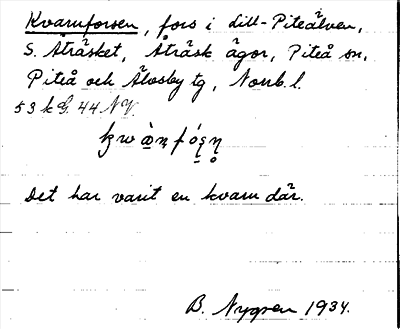 Kvarnforsen, fors i Lill-Piteälven,
S. Åträsket, Åträsk ägor, Piteå sn,
Piteå och Älvsby tg, Norrb. l.
53 k G. 44 NV.
Det har varit en kvarn där.
B. Nygren 1934.